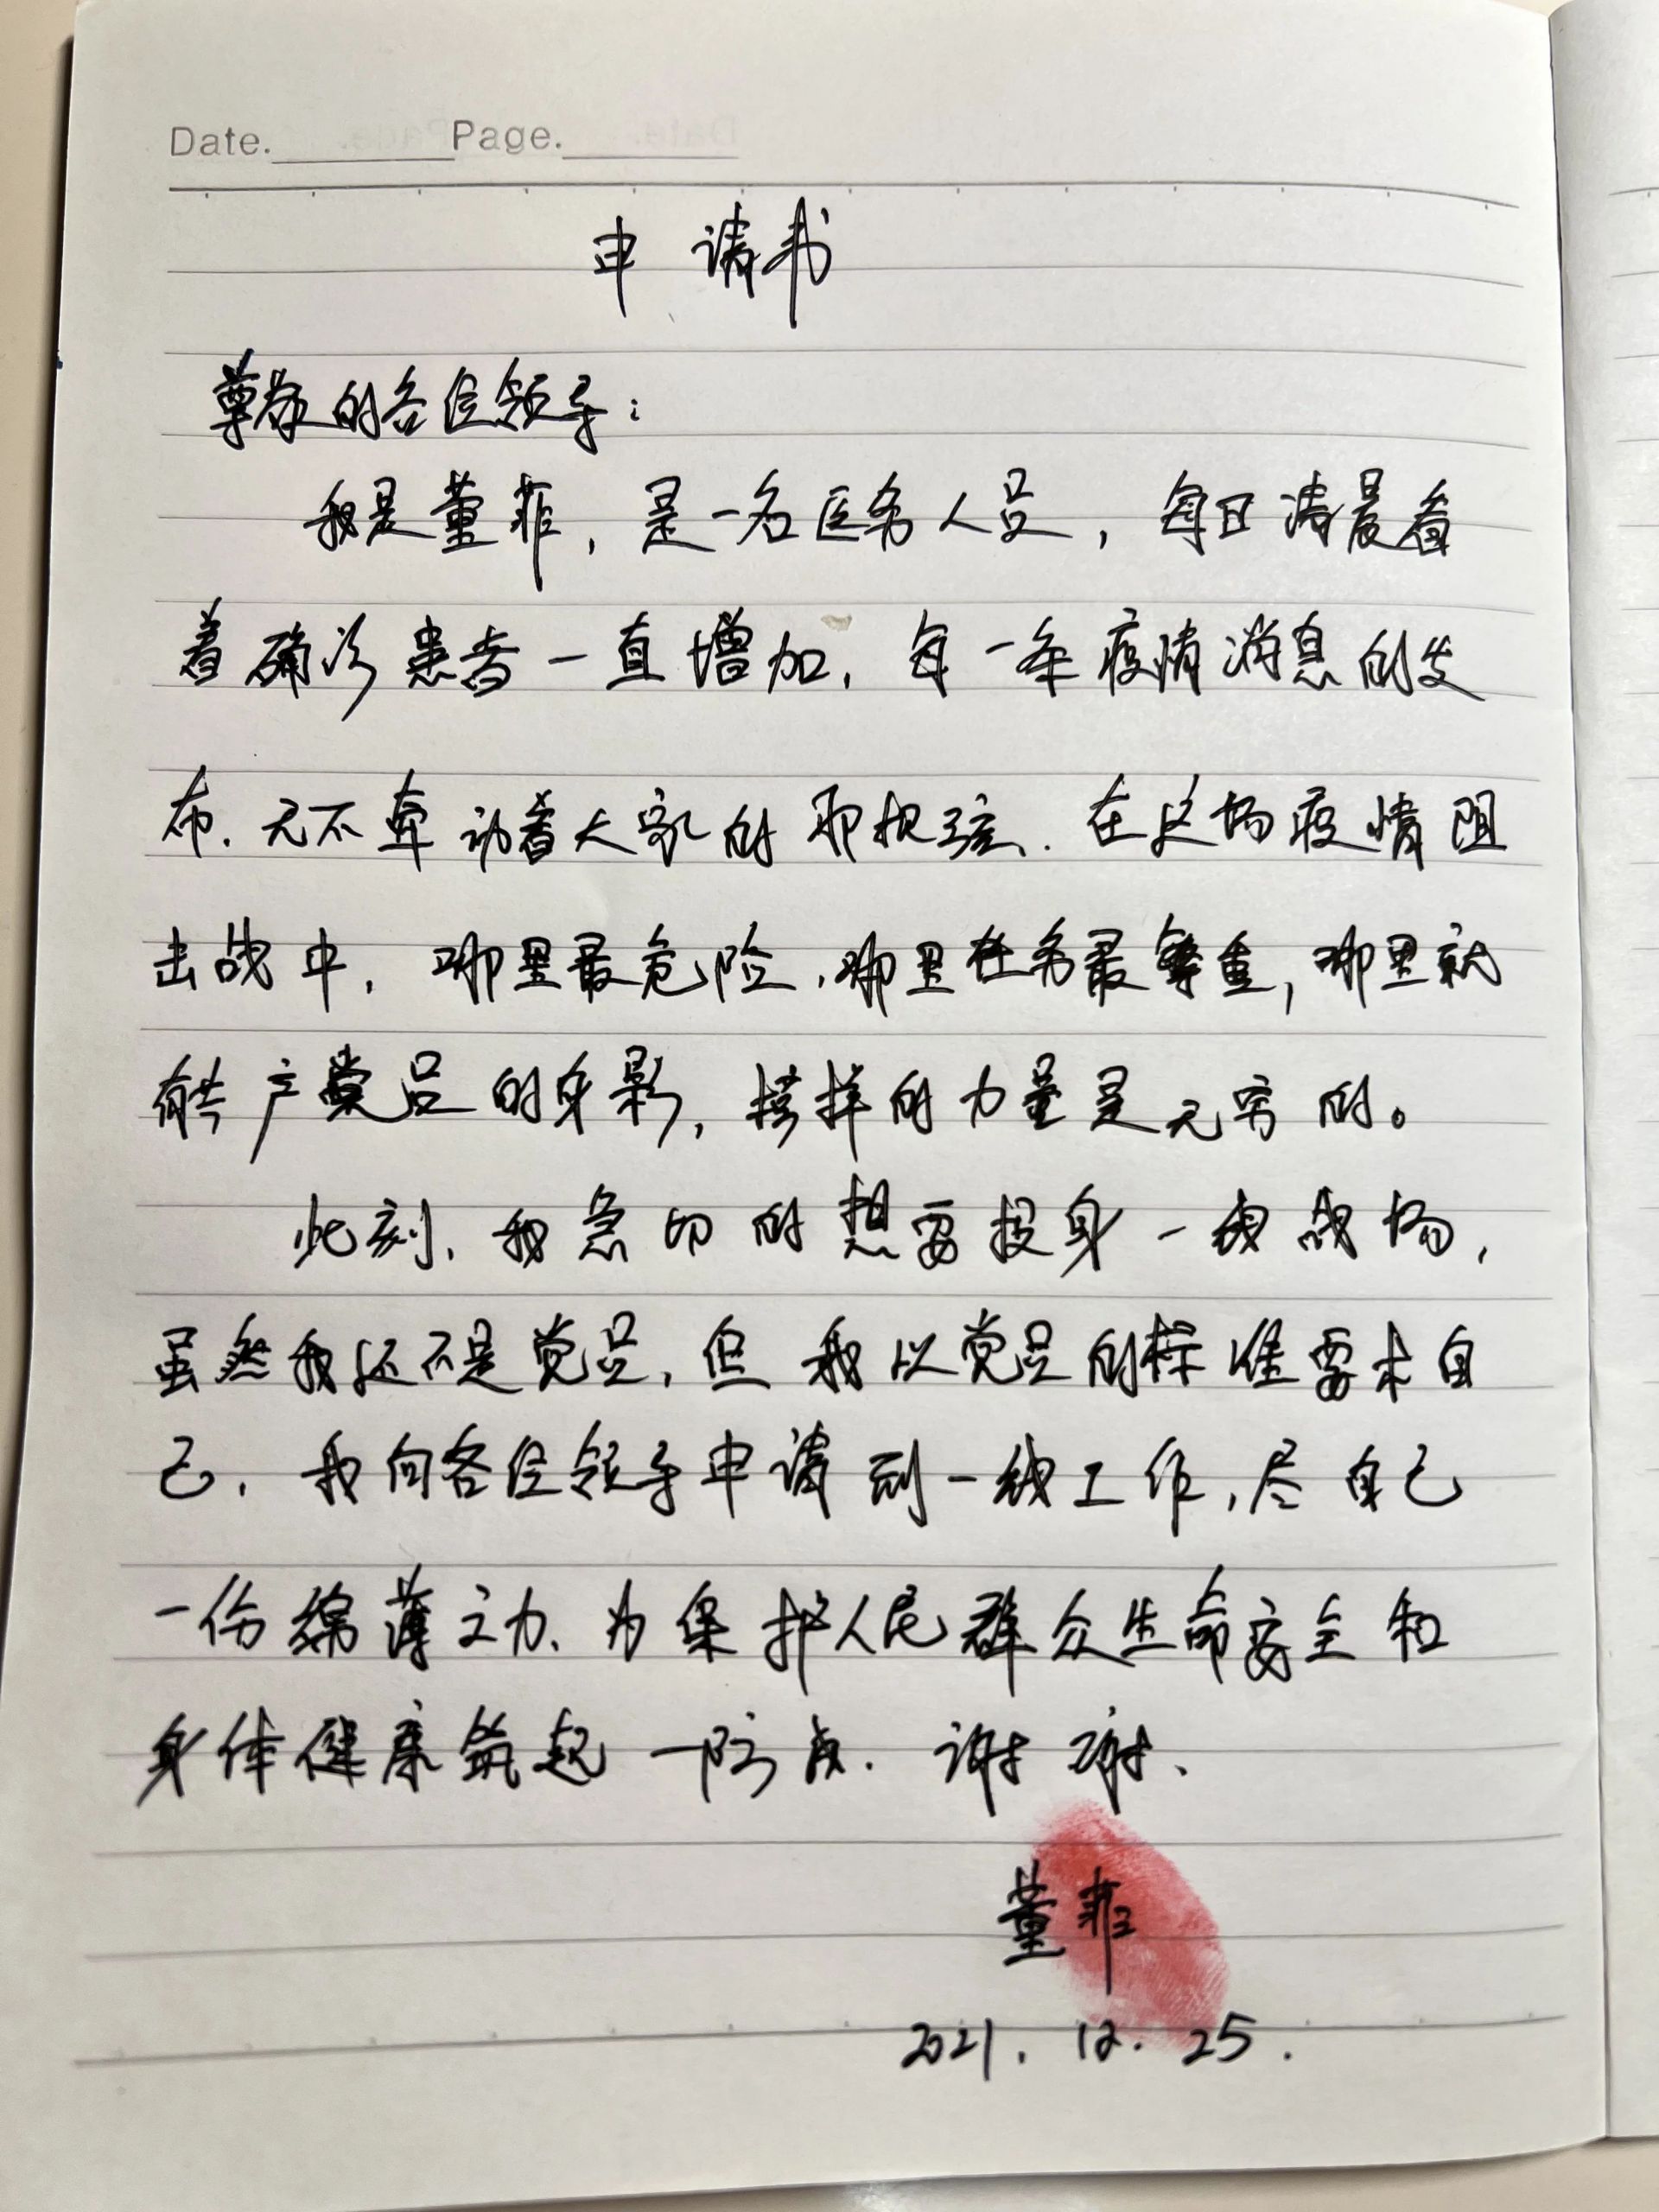 Date. Page.
申请书
尊敬的各位领导：
我是董菲，是一名医务人员，每日清晨看
着确诊患者一直增加，每一条疫情消息的发
布，无不牵动着大家的那根弦。在这场疫情阻
击战中，哪里最危险，哪里任务最繁重，哪里就
有共产党员的身影，榜样的力量是无穷的。
此刻，我急切的想要投身一线战场，
虽然我还不是党员，但我以党员的标准要求自
己，我向各位领导申请到一线工作，尽自己
一份绵薄之力、为保护人民群众生命安全和
身体健康筑起一防点．谢谢、
董菲
2021.12.25.